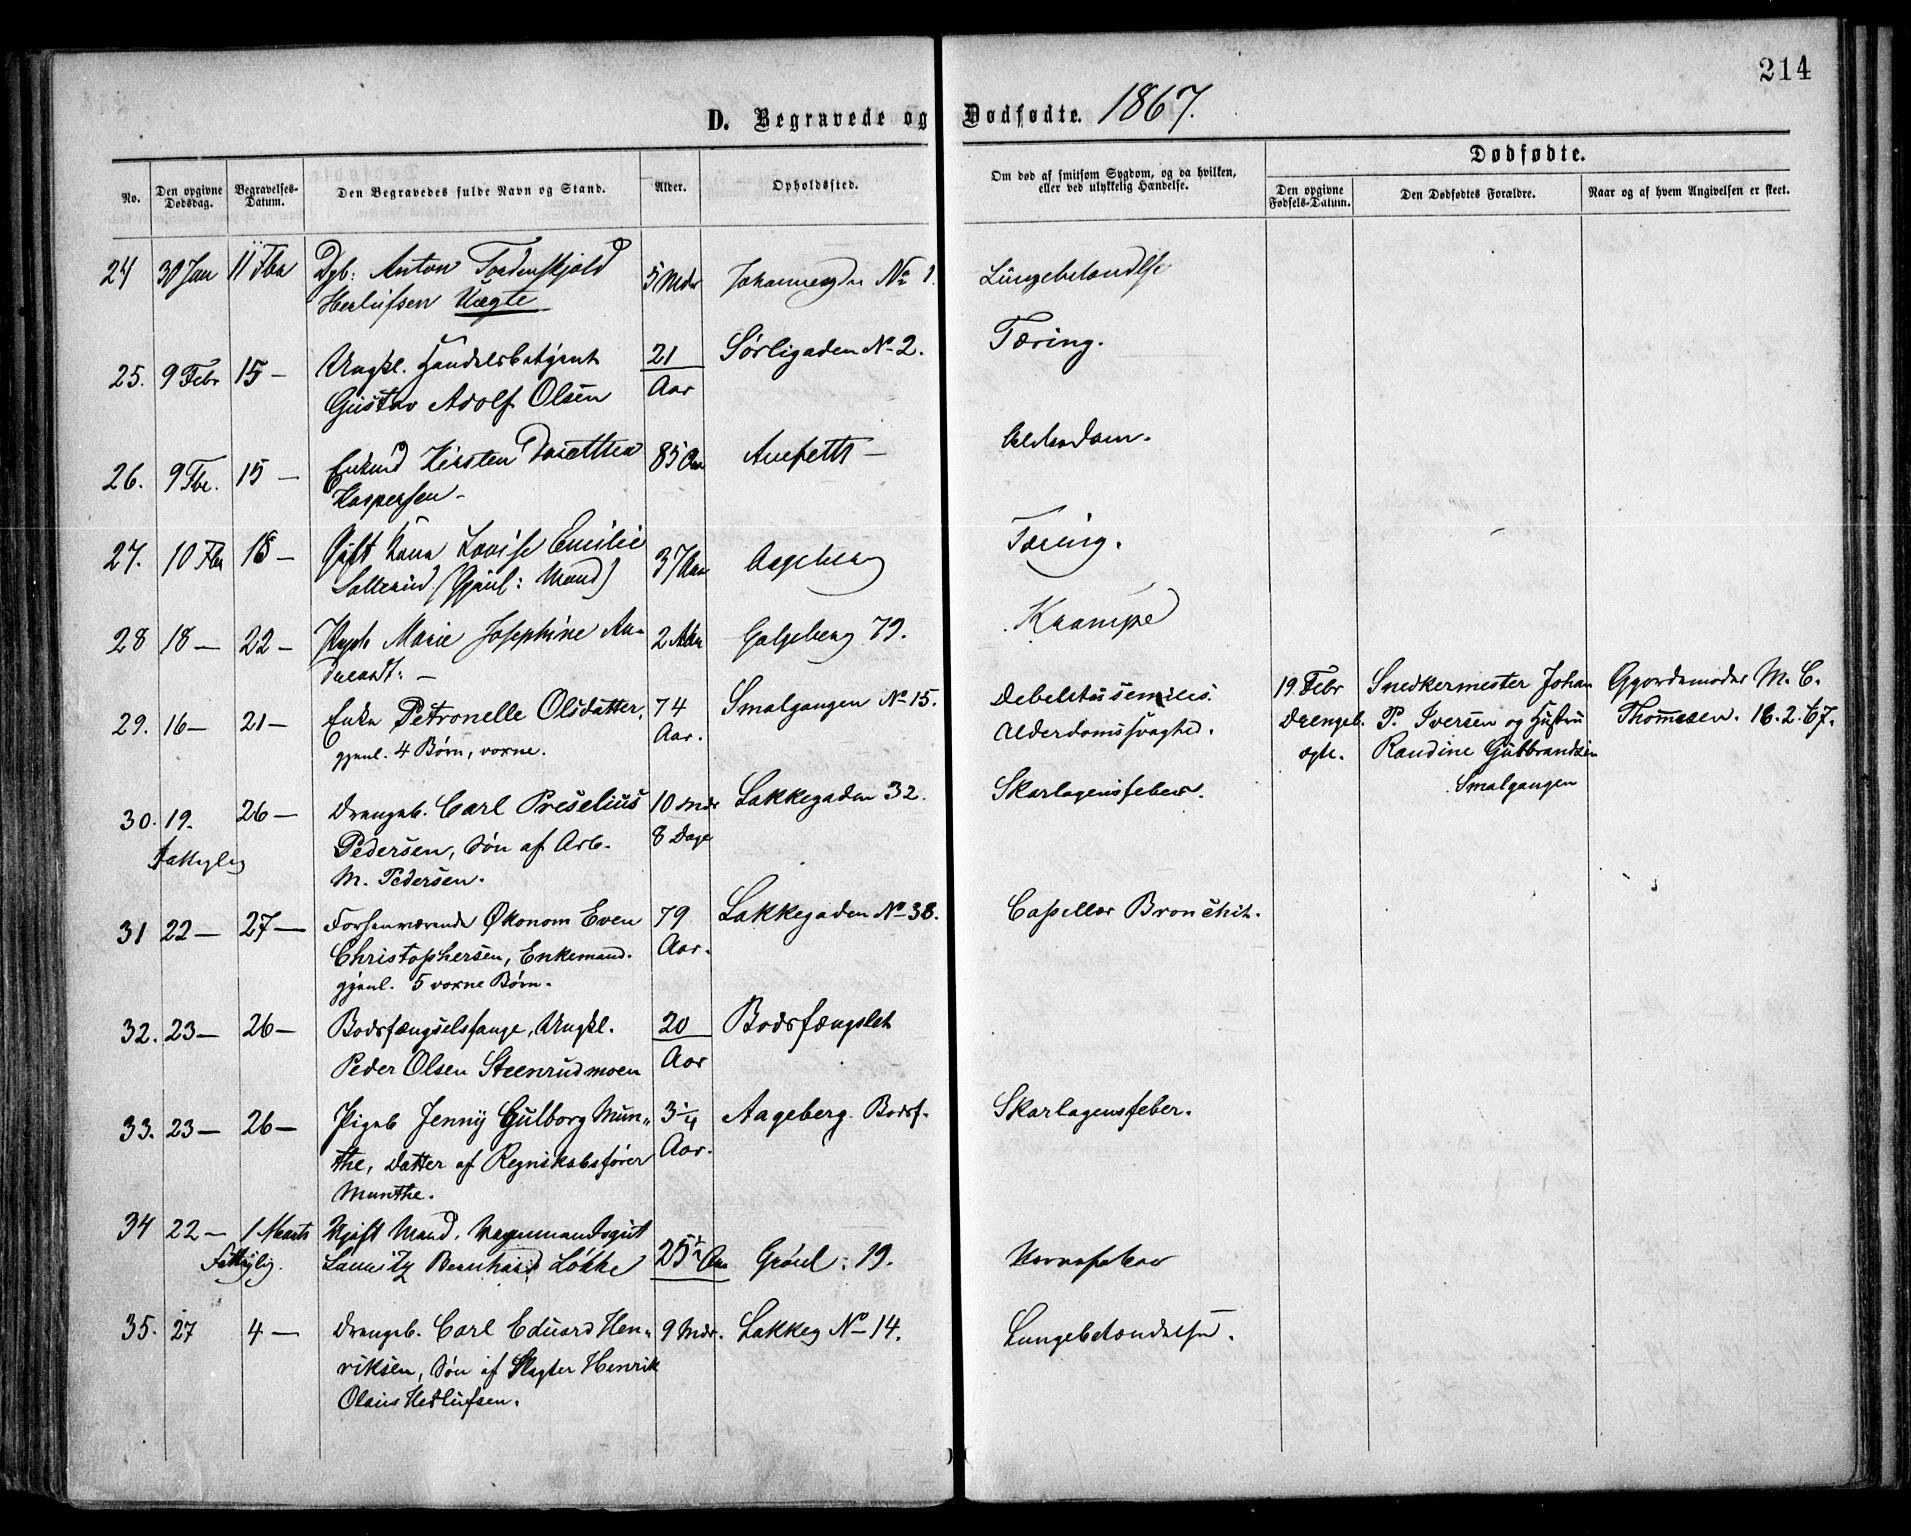 214
D. Begravede og Dødfødte. 1867.
No.
Den opgivne Dødsdag.
Begravelses-Datum.
Den Begravedes fulde Navn og Stand.
Alder.
Opholdssted.
Om død af smitsom Sygdom, og da hvilken, eller ved ulykkelig Hændelse.
Dødfødte.
Den opgivne Fødsels-Datum.
Den Dødfødtes Forældre.
Naar og af hvem Angivelsen er skeet.
24 30 Jan 11 Fbr Dgb: Anton Tordenskjold 5 Mdr No 1. Lungebetændelse
Herlufsen Uægte
25. 9 Febr 15 — Ungkl. Handelsbetjent 21 Aar Sørligaden No 2. Tæring.
Gustav Adolf Olsen
26. 9 Fbr. 15 — Enkemd Kirsten Dorothea 85 Aar Alderdom.
Kaspersen —
27. 10 Fbr 18 — Gift Kone Lovise Emilie 37 Aar Aageberg Tæring.
(Gjenl: Mand)
28 18 — 22 — Pigeb Marie Josephine An- 2 Aar Galgeberg 79. Krampe
29. 16 — 21 — Enke Petronelle Olsdatter, 74 Aar. Smalgangen No 15. Debelitas senilis.
gjenl. 4 Børn, voxne. Alderdomssvaghed.
19 Febr Snedkermester Johan Gjordemoder M. C.
Drengeb. P. Iversen og Hustru Thomesen. 18.2.67.
ægte. Randine Gulbrandsen
Smalgangen
30. 19. 26 — Drengeb. Carl Preselius 10 Mdr 8 Dage Lakkegaden 32. Skarlagensfeber.
Fattiglig Pedersen, Søn af Arb.
M. Pedersen.
31 22 — 27 — Forhenværende Økonom Even 79 Aar. Lakkegaden No 38. Capillær Bronchit.
Christophersen, Enkemand.
gjenl. 5 voxne Børn.
32. 23 — 26 — Bodsfængselsfange, Ungkl. 20 Aar Bodsfængslet
Peder Olsen Steenrudmoen
33. 23 — 26 — Pigeb Jenny Gulborg Mun- 3 1/4 Aar. Aageberg. Bodsf. Skarlagensfeber.
the, Datter af Regnskabsfører
Munthe.
34 22 — 1 Marts Gift Mand, Vognmandsgut 25 1/2 Aar Grønl: 19. Nervefeber
Fattiglig. Lauritz Bernhard Løkke
35. 27 4 — Drengeb. Carl Eduard Hen- 9 Mdr. Lakkeg No 14. Lungebetændelse.
riksen, Søn af Slagter Henrik
Olaus Herlufsen.